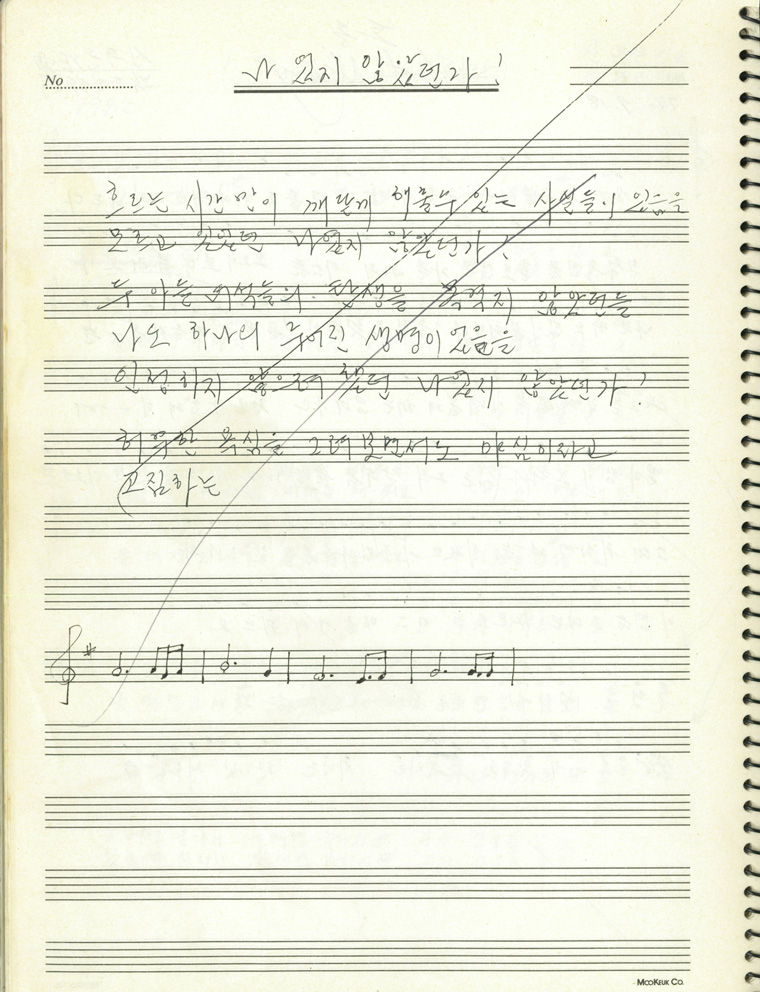 나 였지 않았던가!
No
흐르는 시간만이 깨닫게 해줄수 있는 사실들이 있음을
모르고 있었던 나였지 않았던가!
두 아들 녀석들의 탄생을 목격지 않았던들
나도 하나의 주어진 생명이었음을
인정하지 않으려 했던 나였지 않았던가!
허황한 욕심을 그려보면서도 야심이라고
고집하는
MOOKEUK CO.